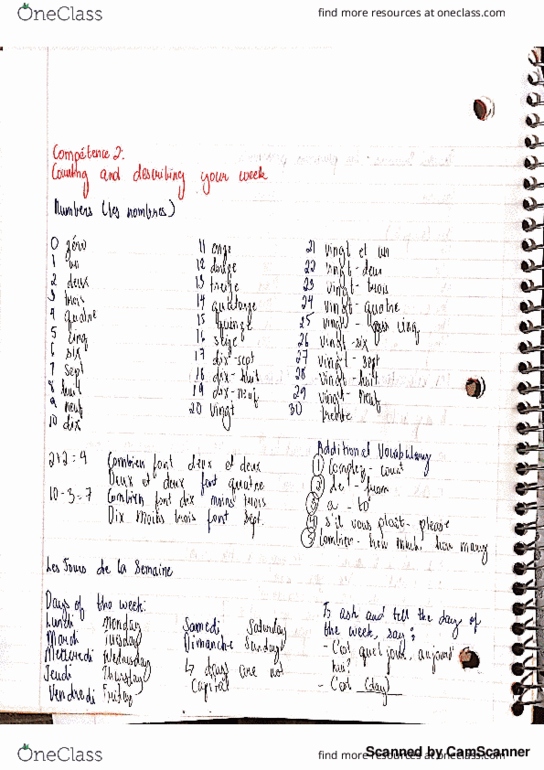 OneClass
find more resources at oneclass.com
Compétence 2:
Counting and describing your week
Numbers (les nombres)
0 zéro
1 un
2 deux
3 trois
4 quatre
5 cinq
6 six
7 sept
8 huit
9 neuf
10 dix
11 onze
12 douze
13 treize
14 quatorze
15 quinze
16 seize
17 dix-sept
18 dix-huit
19 dix-neuf
20 vingt
21 vingt et un
22 vingt-deux
23 vingt-trois
24 vingt-quatre
25 vingt - cinq
26 vingt-six
27 vingt-sept
28 vingt-huit
29 vingt-neuf
30 trente
2+2=4 Combien font deux et deux
Deux et deux font quatre
10-3=7 Combien font dix moins trois
Dix moins trois font sept.
Additional Vocabulary
① Comptez - count
② de - from
③ a - to
④ s'il vous plait - please
⑤ Combien - how much, how many
Les Jours de la Semaine
Days of the week:
Lundi Monday
Mardi Tuesday
Mercredi Wednesday
Jeudi Thursday
Vendredi Friday
Samedi Saturday
Dimanche Sunday
↳ days are not
capital
To ask and tell the day of
the week, say:
- C'est quel jour, aujourd
hui?
- C'est (day)
OneClass
find more resources at oneclass.com
Scanned by CamScanner